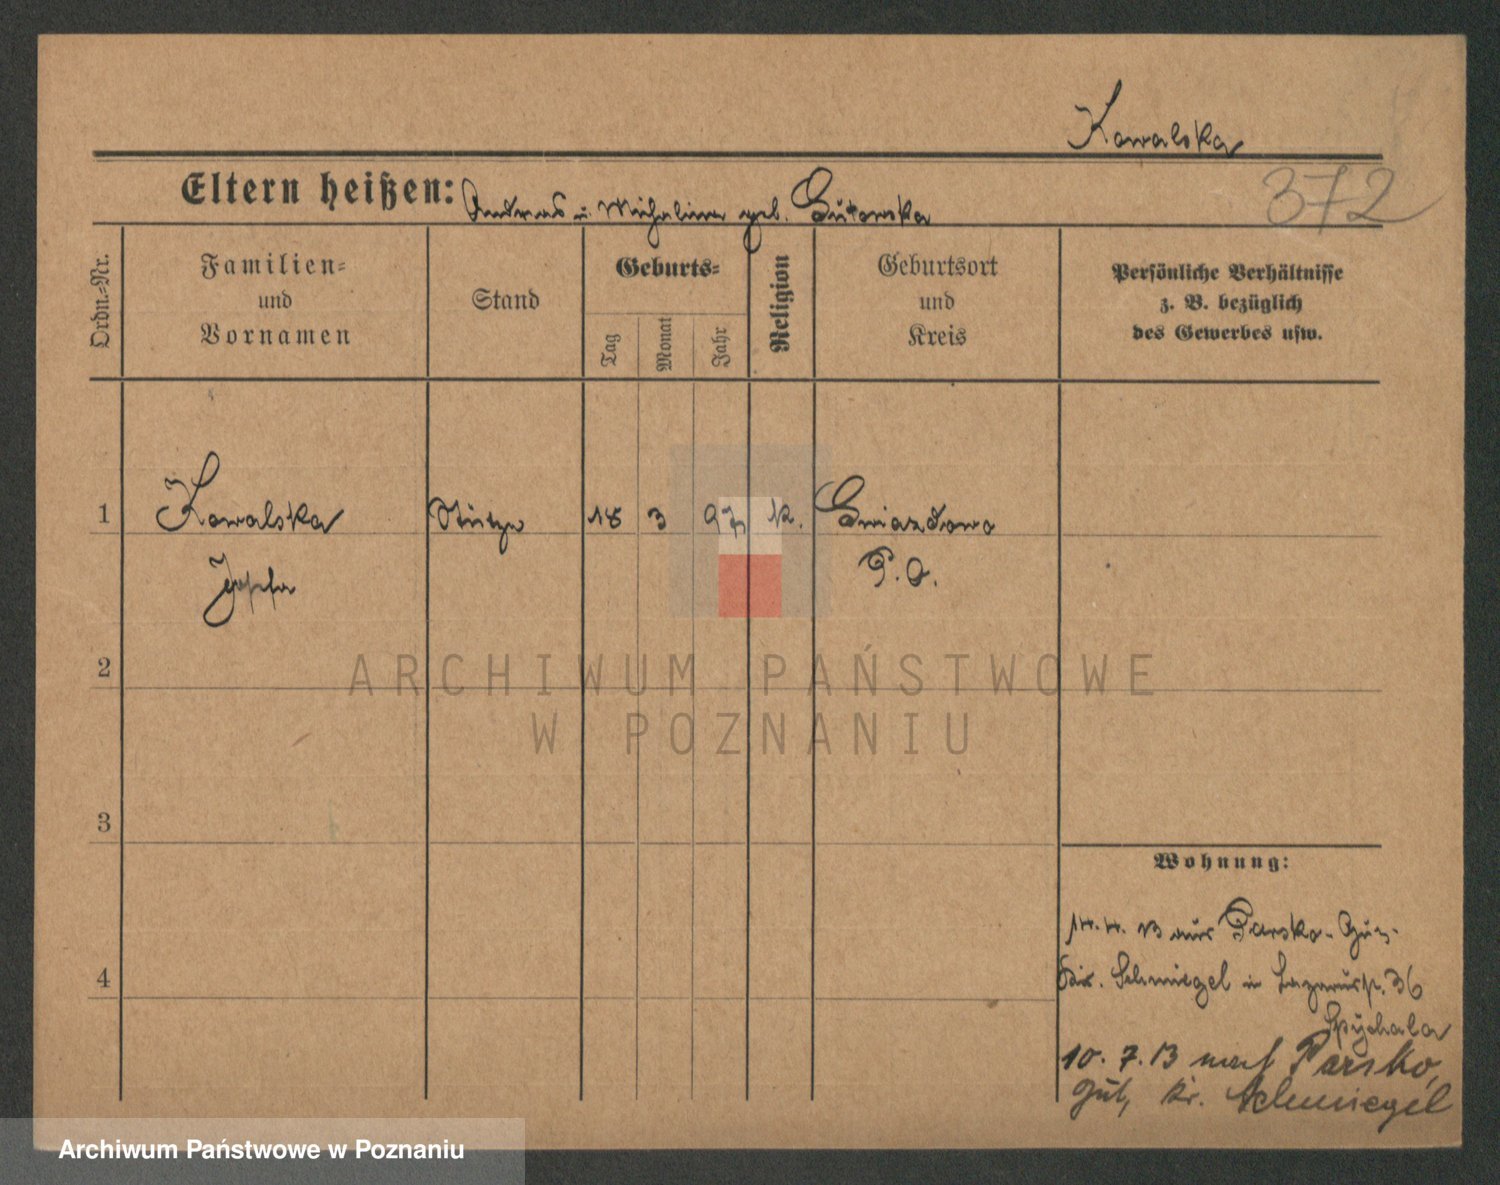 Kowalska
372
Eltern heißen: Andreas u. Michalina geb. Gutowska
Ordn.-Nr.
Familien-
und
Vornamen
Stand
Geburts-
Tag
Monat
Jahr
Religion
Geburtsort
und
Kreis
Persönliche Verhältnisse
z. B. bezüglich
des Gewerbes usw.
1 Kowalska Stütze 18 3 97 k. Gwiazdowo
Josefa P. O.
2
3
4
Wohnung:
14. 4. 13 aus Parsko-
Kr. Schmiegel in Lazarusstr. 36
Spychala
10. 7. 13 nach Parsko,
Gut, Kr. Schmiegel
ARCHIWUM PAŃSTWOWE
W POZNANIU
Archiwum Państwowe w Poznaniu